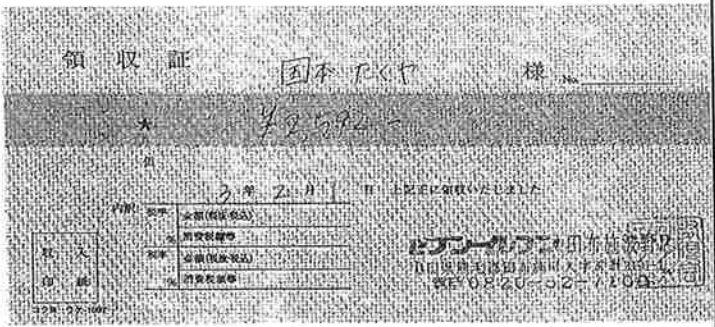 領収証 国本 たくや 様 No.
★ ¥2,592-
但
3年 2月 1日 上記正に領収いたしました
内訳 税率 金額(税抜・税込)
% 消費税額等
税率 金額(税抜・税込)
% 消費税額等
収入
印紙
セブン-イレブン 田布施波野店
電話0820-52-7100
コクヨ ウケ-1097